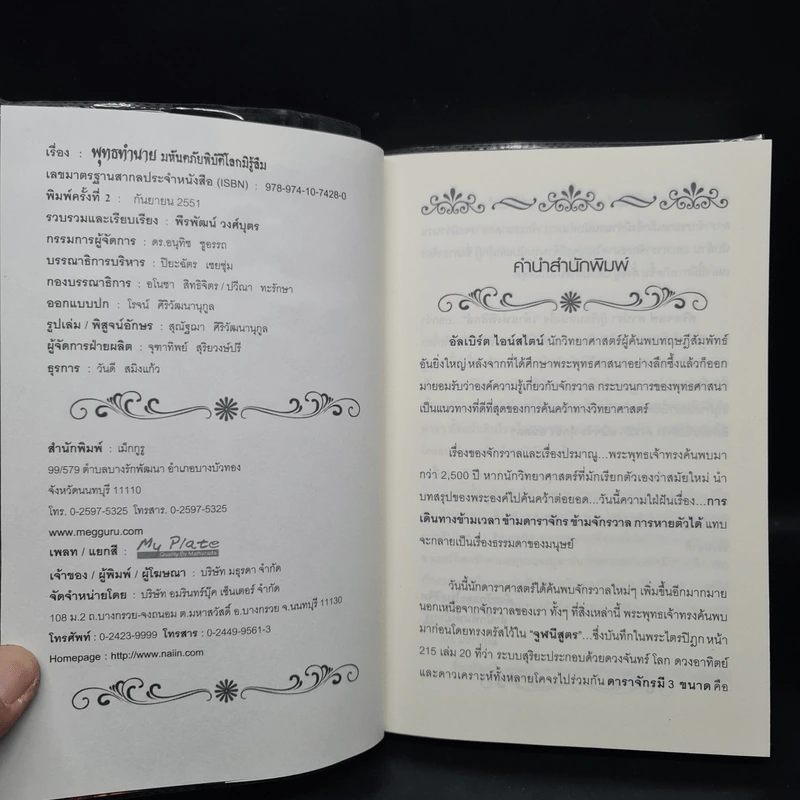 เรื่อง : พุทธทำนาย มหันตภัยพิบัติโลกมิรู้ลืม
เลขมาตรฐานสากลประจำหนังสือ (ISBN) : 978-974-10-7428-0
พิมพ์ครั้งที่ 2 : กันยายน 2551
รวบรวมและเรียบเรียง : พีรพัฒน์ วงศ์บุตร
กรรมการผู้จัดการ : ดร.อนุทิช ชูอรรถ
บรรณาธิการบริหาร : ปิยะฉัตร เชยชุ่ม
กองบรรณาธิการ : อโนชา สิทธิจิตร / ปวีณา ทะรักษา
ออกแบบปก : โรจน์ ศิริวัฒนานุกูล
รูปเล่ม / พิสูจน์อักษร : สุณัฐฌา ศิริวัฒนานุกูล
ผู้จัดการฝ่ายผลิต : จุฑาทิพย์ สุริยวงษ์ปรี
ธุรการ : วันดี สมิงแก้ว
สำนักพิมพ์ : เม็กกูรู
99/579 ตำบลบางรักพัฒนา อำเภอบางบัวทอง
จังหวัดนนทบุรี 11110
โทร. 0-2597-5325 โทรสาร. 0-2597-5325
www.megguru.com
เพลท / แยกสี : My Plate
Quality By Mathurada
เจ้าของ / ผู้พิมพ์ / ผู้โฆษณา : บริษัท มธุรดา จำกัด
จัดจำหน่ายโดย : บริษัท อมรินทร์บุ๊ค เซ็นเตอร์ จำกัด
108 ม.2 ถ.บางกรวย-จงถนอม ต.มหาสวัสดิ์ อ.บางกรวย จ.นนทบุรี 11130
โทรศัพท์ : 0-2423-9999 โทรสาร : 0-2449-9561-3
Homepage : http://www.naiin.com
คำนำสำนักพิมพ์
อัลเบิร์ต ไอน์สไตน์ นักวิทยาศาสตร์ผู้ค้นพบทฤษฎีสัมพัทธ์
อันยิ่งใหญ่ หลังจากที่ได้ศึกษาพระพุทธศาสนาอย่างลึกซึ้งแล้วก็ออก
มายอมรับว่าองค์ความรู้เกี่ยวกับจักรวาล กระบวนการของพุทธศาสนา
เป็นแนวทางที่ดีที่สุดของการค้นคว้าทางวิทยาศาสตร์
เรื่องของจักรวาลและเรื่องปรมาณู...พระพุทธเจ้าทรงค้นพบมา
กว่า 2,500 ปี หากนักวิทยาศาสตร์ที่มักเรียกตัวเองว่าสมัยใหม่ นำ
บทสรุปของพระองค์ไปค้นคว้าต่อยอด...วันนี้ความใฝ่ฝันเรื่อง...การ
เดินทางข้ามเวลา ข้ามดาราจักร ข้ามจักรวาล การหายตัวได้ แทบ
จะกลายเป็นเรื่องธรรมดาของมนุษย์
วันนี้นักดาราศาสตร์ได้ค้นพบจักรวาลใหม่ๆ เพิ่มขึ้นอีกมากมาย
นอกเหนือจากจักรวาลของเรา ทั้งๆ ที่สิ่งเหล่านี้ พระพุทธเจ้าทรงค้นพบ
มาก่อนโดยทรงตรัสไว้ใน "จูฬนีสูตร"...ซึ่งบันทึกในพระไตรปิฎก หน้า
215 เล่ม 20 ที่ว่า ระบบสุริยะประกอบด้วยดวงจันทร์ โลก ดวงอาทิตย์
และดาวเคราะห์ทั้งหลายโคจรไปร่วมกัน ดาราจักรมี 3 ขนาด คือ